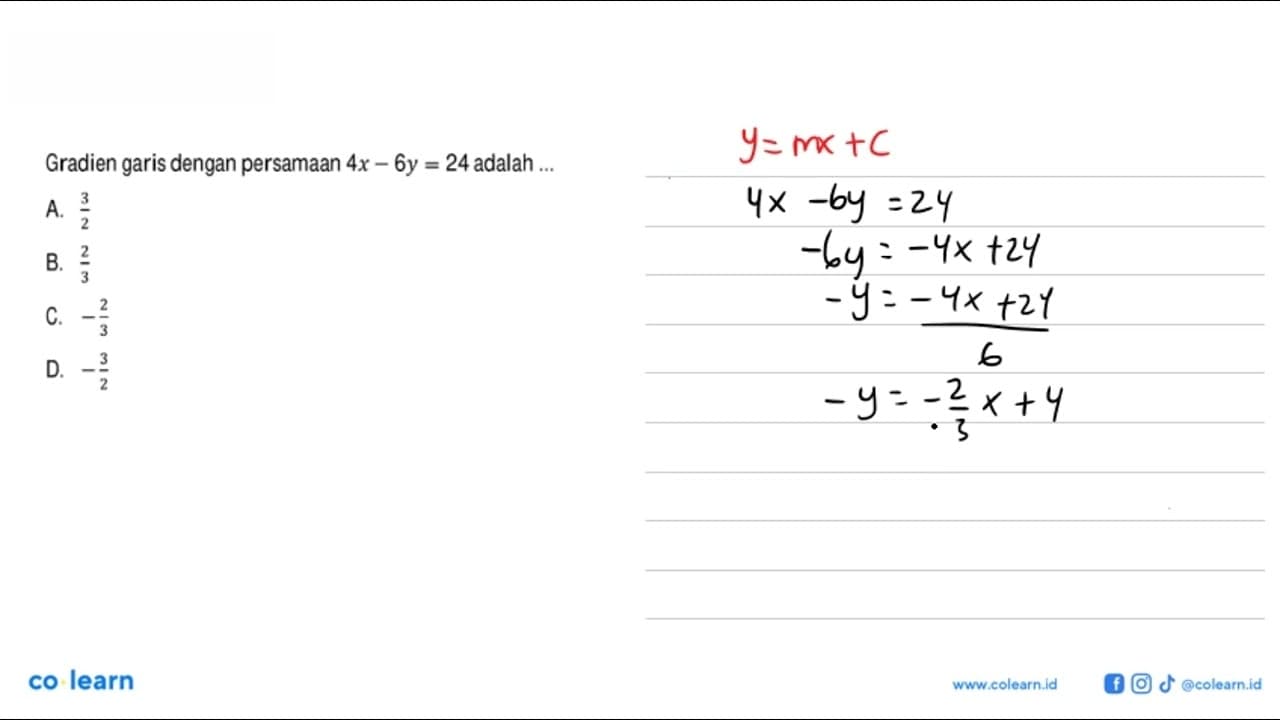 Gradien garis dengan persamaan 4x − 6y = 24 adalah ...
A. 3/2
B. 2/3
C. −2/3
D. −3/2
y = mx + C
4x − 6y = 24
−6y = −4x + 24
−y = −4x + 24
6
−y = −2/3 x + 4
co·learn
www.colearn.id
@colearn.id